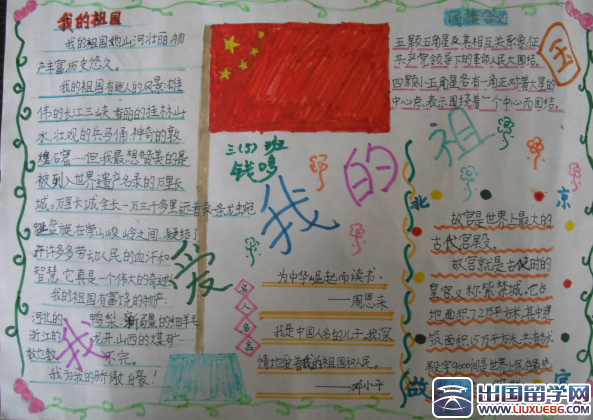 我的祖国
我的祖国她山河壮丽,物
产丰富历史悠久。
我的祖国有迷人的风景:雄
伟的长江三峡,秀丽的桂林山
水,壮观的兵马俑,神奇的敦
煌石窟……但我最想赞美的是
被列入世界遗产名录的万里长
城。万里长城全长一万三千多里,远看象一条龙
在崇山峻岭之间,凝结了
许许多多劳动人民的血汗和
智慧,它真是一个伟大的奇迹。
我的祖国有富饶的物产:
河北的鸭梨,新疆的细羊毛
浙江的龙井,山西的煤矿……
数也数不完。
我为我的骄傲自豪!
三(5)班
我爱我的祖国
国旗含义
五颗五角星及其相互关系象征
共产党领导下的革命人民大团结。
四颗小五角星各有一角正对着大星的
中心点,表示围绕着一个中心而团结。
名人名言
为中华崛起而读书。
——周恩来
我是中国人民的儿子,我深
情地爱着我的祖国和人民。
——邓小平
北京故宫
故宫是世界上最大的
古代宫殿。
故宫就是古代时的
皇宫,又称紫禁城,它占
地面积72万平方米,其中建
筑面积15万平方米,共有
殿宇9000间是世界上
出国留学网
www.liuxue86.com